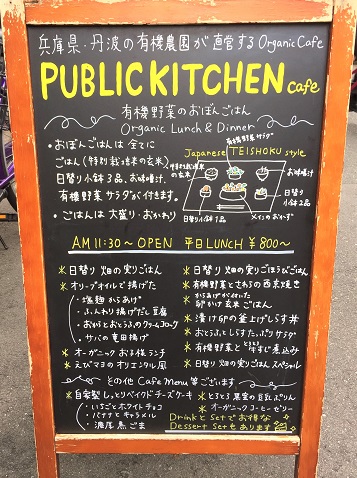 兵庫県・丹波の有機農園が直営するOrganic Cafe
PUBLIC KITCHEN cafe
有機野菜のおぼんごはん
Organic Lunch & Dinner
・おぼんごはんは全てに
ごはん(特別栽培米の玄米)
日替り小鉢3品、お味噌汁、
有機野菜サラダが付きます。
・ごはんは大盛り・おかわり
有機野菜サラダ
Japanese TEISHOKU style
の玄米
お味噌汁
日替り
小鉢2品
日替り小鉢1品
メインのおかず
AM 11:30~ OPEN 平日LUNCH ¥800~
*日替り 畑の実りごはん
*オリーブオイルで揚げた
・塩麹からあげ
・ふんわり揚げだし豆腐
・おからとおとうふのクリームコロッケ
・サバの竜田揚げ
*オーガニック お子様ランチ
*えびマヨの オリエンタル風
*日替り 畑の実りごほうびごはん
*有機野菜とさわらの西京焼き
*からあげが付いた
卵かけ玄米ごはん
*漬け卵の釜上げしらす丼
*おとうふとしらすたっぷりサラダ
*有機野菜と とろとろ牛すじ煮込み
*日替り 畑の実りごはん スペシャル
その他 Cafe Menu 等ございます
*自家製 しっとりベイクドチーズケーキ
・いちごとホワイトチョコ
・バナナとキャラメル
・濃厚黒ごま
*とろとろ果実の豆乳ぷりん
*オーガニックコーヒーゼリー
DrinkとSetでお得な
Dessert Setもあります